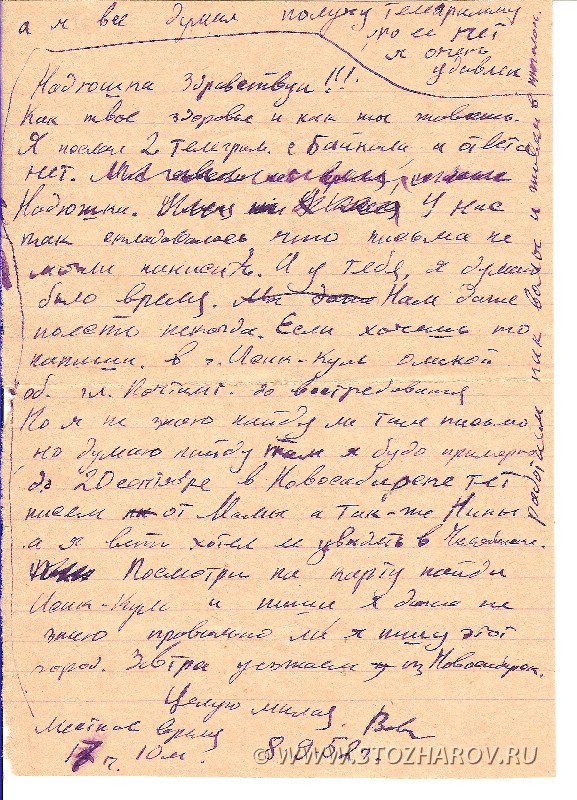 а я все думал получу телеграмму
но ее нет
я очень
удивлен
Надюшка здравствуй!!!
Как твое здоровье и как ты живешь.
Я послал 2 телеграм. с Байкала и ответа
нет.
Надюшка. У нас
так складывалось что письма не
могли написать. И у тебя, я думаю
было время. Нам даже
поесть некогда. Если хочешь то
напиши. в г. Исик-Куль омской
об. гл. Почтамт. до востребования
Но я не знаю найду ли там письмо
но думаю найду там я буду примерно
до 20 сентябре в Новосибирске нет
писем от Мамы а так-же Нины
а я ведь хотел увидеть в
Посмотри на карту найди
Исик-Куль и пиши я даже не
знаю правильно ли я пишу этот
город. Завтра уезжаем из Новосибирск.
Целую милая. Вова
Местное время
17 ч. 10 м. 8 9 58 г.
работаем как волы и живем в
©WWW.STOZHAROV.RU